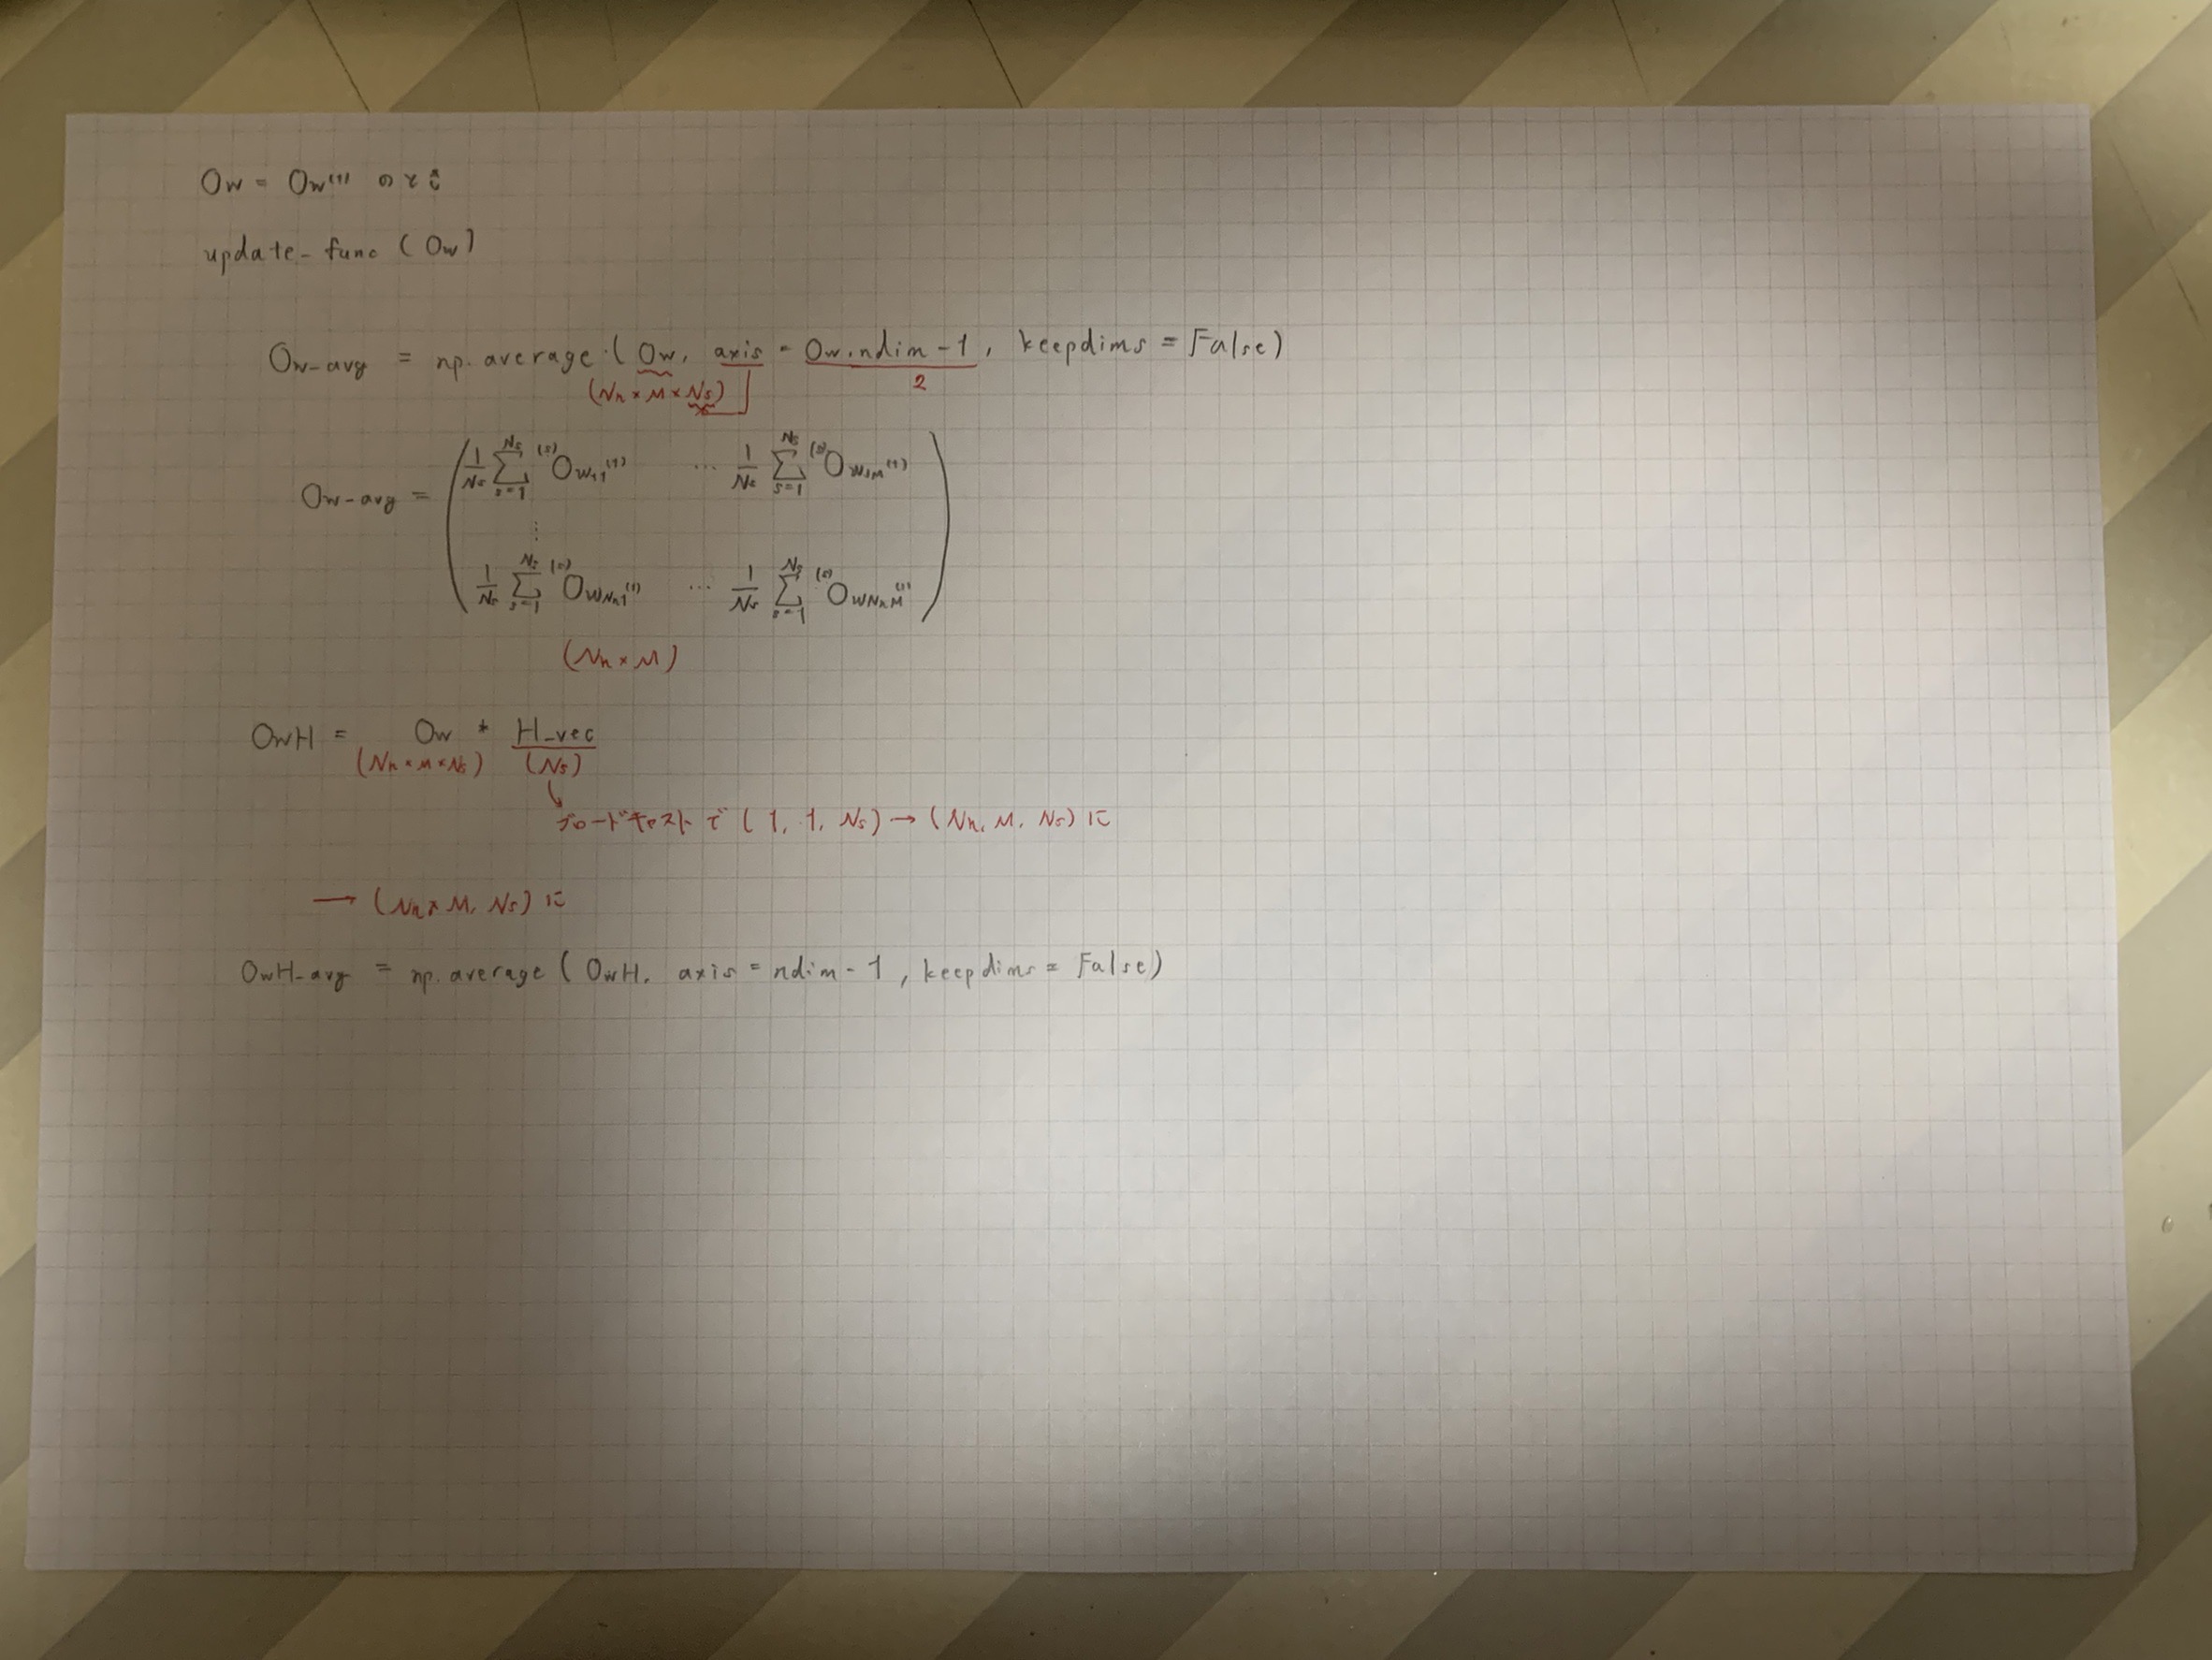 Ow = Ow⁽¹⁾ のとき
update_func (Ow)
Ow_avg = np.average (Ow, axis = Ow.ndim - 1, keepdims = False)
(Nn × M × Ns) 2
Ow_avg = ( 1/Ns Σ_{s=1}^{Ns} ⁽ˢ⁾O_{W11}⁽¹⁾ … 1/Ns Σ_{s=1}^{Ns} ⁽ˢ⁾O_{W1M}⁽¹⁾
⋮
1/Ns Σ_{s=1}^{Ns} ⁽ˢ⁾O_{WNn1}⁽¹⁾ … 1/Ns Σ_{s=1}^{Ns} ⁽ˢ⁾O_{WNnM}⁽¹⁾ )
(Nn × M)
OwH = Ow * H_vec
(Nn × M × Ns) (Ns)
ブロードキャストで (1, 1, Ns) → (Nn, M, Ns) に
→ (Nn × M, Ns) に
OwH_avg = np.average (OwH, axis = ndim - 1, keepdims = False)